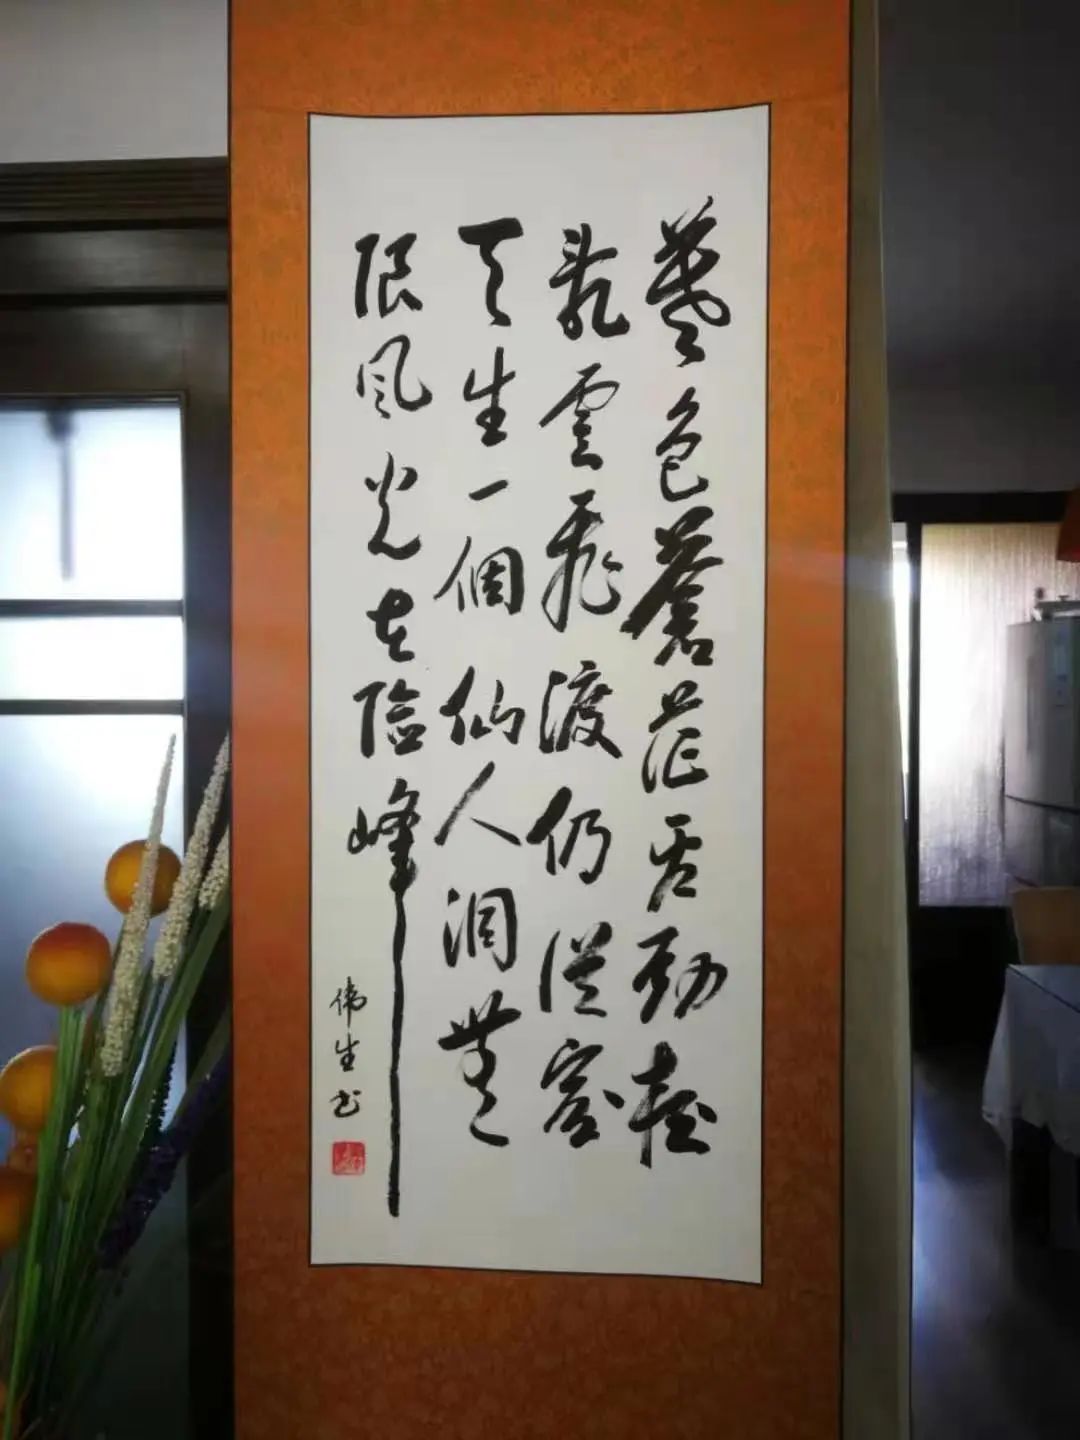 暮色蒼茫看劲松
乱雲飛渡仍從容
天生一個仙人洞無
限风光在险峰
伟生书